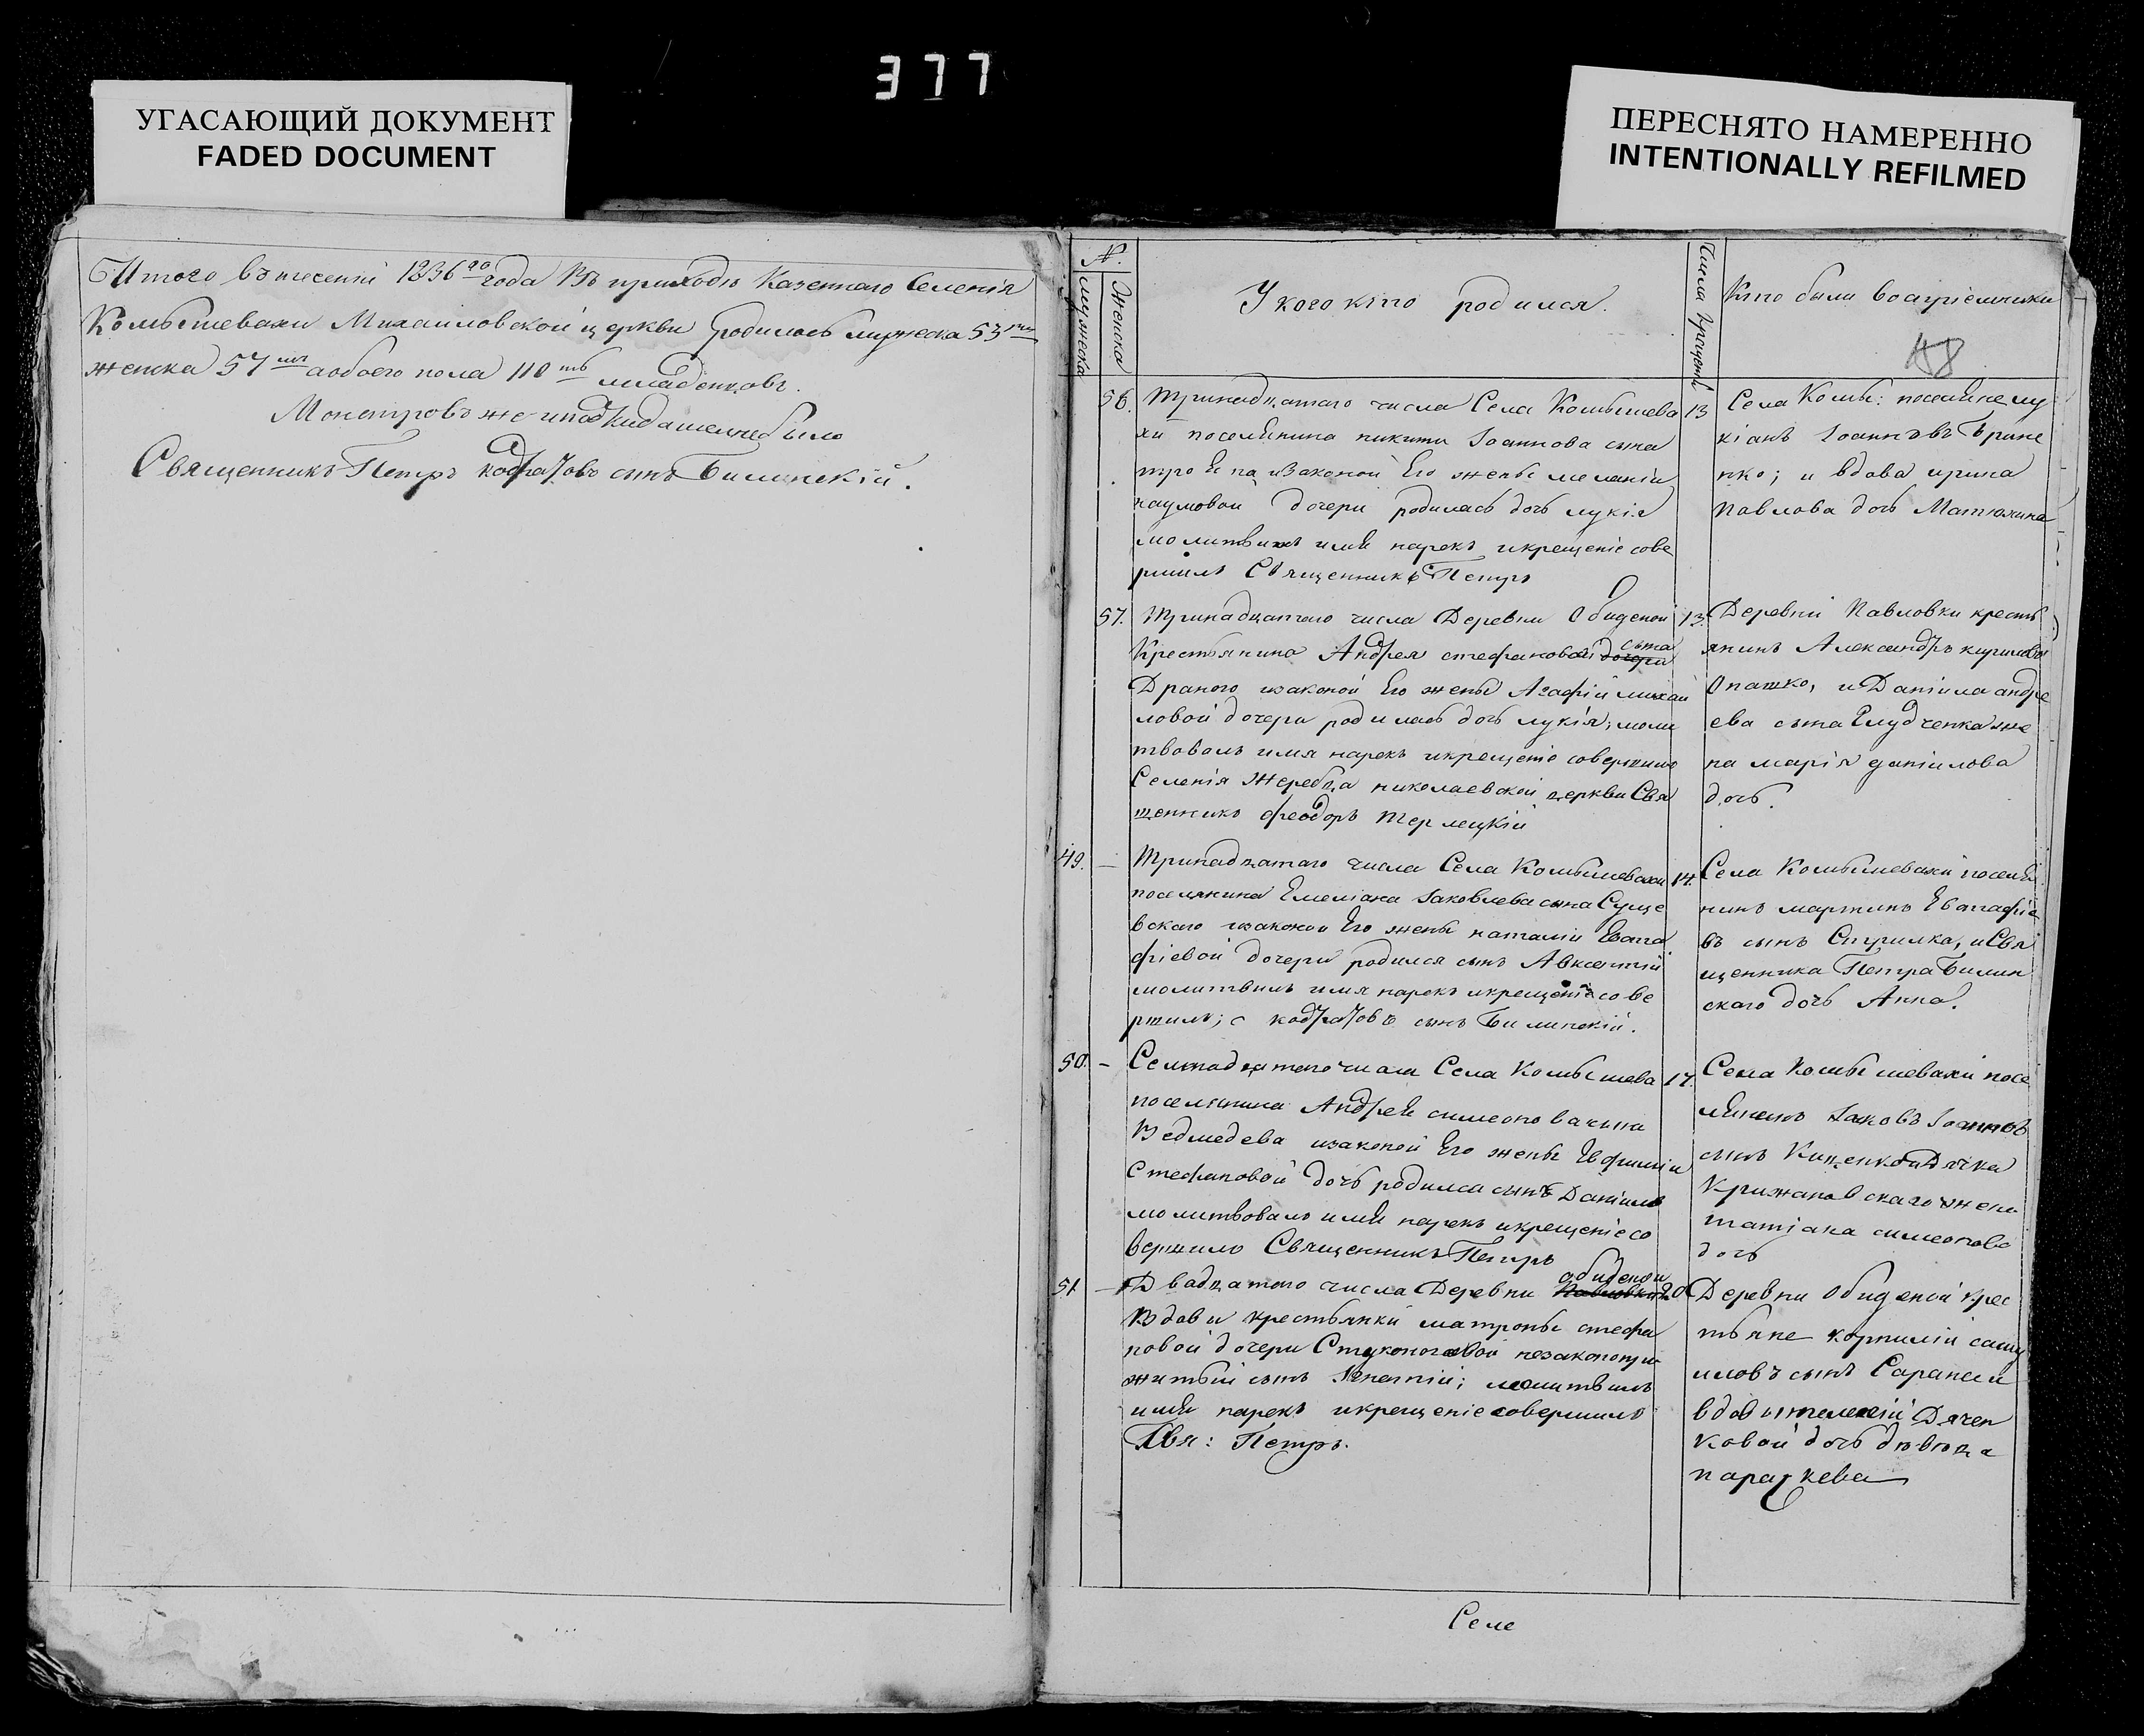 377
УГАСАЮЩИЙ ДОКУМЕНТ
FADED DOCUMENT
ПЕРЕСНЯТО НАМЕРЕННО
INTENTIONALLY REFILMED
Итого в течении 1836го года Въ приходѣ Казеннаго Селенія
Комышевахи Михаиловской церкви родилось мужеска 53
женска 57 а обоего пола 110ть младенцовъ.
Монстровъ же и подкидашей не было
Священникъ Петръ кодратовъ сынъ Билинскій.
№.
мужеска
женска
У кого кто родился.
Числа крещенія
Кто были восприемники
48
56.
Тринадцатаго числа Села Комышева
хи поселянина никити Іоаннова сына
из законой Его жены меланіи
наумовой дочери родилась дочь лукія
молитвилъ имя нарекъ и крещеніе сове
ршилъ Священникъ Петръ
13
Села Комы: поселяне лу
кіанъ Іоанновъ Грине
нко; и вдова ирина
Павлова дочь Матюхина
57.
Тринадцатаго числа Деревни Обиденой
Крестьянина Андрея стефановой дочери сына
Драного и законой Его жены Агафіи михаи
ловой дочери родилась дочь лукія, моли
твовалъ имя нарекъ и крещеніе совершилъ
Селенія Жеребца николаевской церкви Свя
щенникъ феодоръ Терлецкій
13.
Деревни Павловки кресть
янинъ Александръ кириловъ
Опашко, и Даніила андре
ева сына Глудченка же
на марія даніилова
дочь.
49.
—
Тринадцатаго числа Села Комышевахи
поселянина Емеліана Іаковлева сына Суще
вскаго и законой Его жены наталіи Евста
фіевой дочери родился сынъ Авксентій
молитвилъ имя нарекъ и крещеніе сове
ршилъ; с кодратовъ сынъ Билинскій.
14.
Села Комышевахи поселя
нинъ мартинъ Евстафіе
въ сынъ Стрилка, и Свя
щенника Петра Билин
скаго дочь Анна.
50.
—
Семнадцатого числа Села Комышева
поселянина Андрея симеонова сина
Ведмедева и законой Его жены Евфиміи
Стефановой дочь родился сынъ Даніилъ
молитвовалъ имя нарекъ и крещеніе со
вершилъ Священникъ Петръ
17.
Села Комышевахи посе
лянинъ Іаковъ Іоанновъ
сынъ Куценко и Дячка
Крижановскаго жена
татіана симеонова
дочь
51.
—
Двадцатого числа Деревни Павловки обиденои
Вдови крестьянки матроны стефа
новой дочери Стуконоговой незаконопри
житый сынъ Игнатій; молитвилъ
имя нарекъ и крещеніе совершилъ
Свя: Петръ.
20
Деревни Обиденой крес
тьяне корнилій саму
иловъ сынъ Саранъ и
вдови Дячен
ковой дочь дѣвица
параскева
Селе